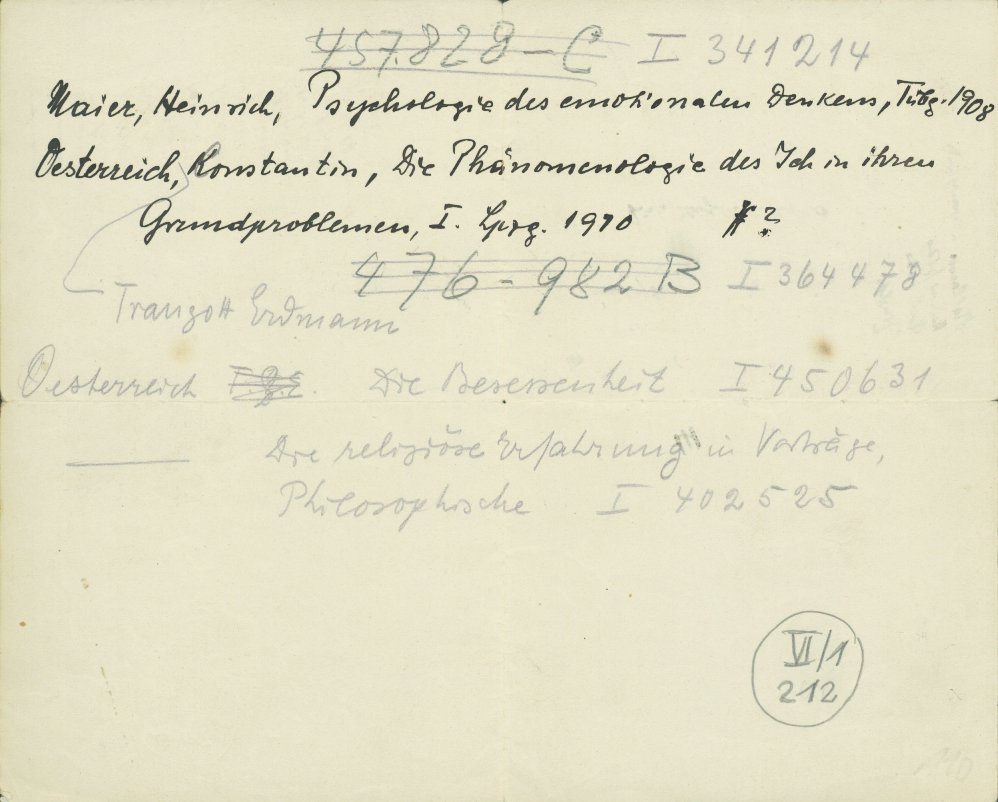 457.828-C I 341214
Maier, Heinrich, Psychologie des emotionalen Denkens, Tübg. 1908
Oesterreich, Konstantin, Die Phänomenologie des Ich in ihren
Grundproblemen, I. Lpzg. 1910 ?
476-982 B I 364478
Traugott Erdmann
Oesterreich Die Besessenheit I 450631
Die religiöse Erfahrung in Vorträge,
Philosophische I 402525
VI/1
212